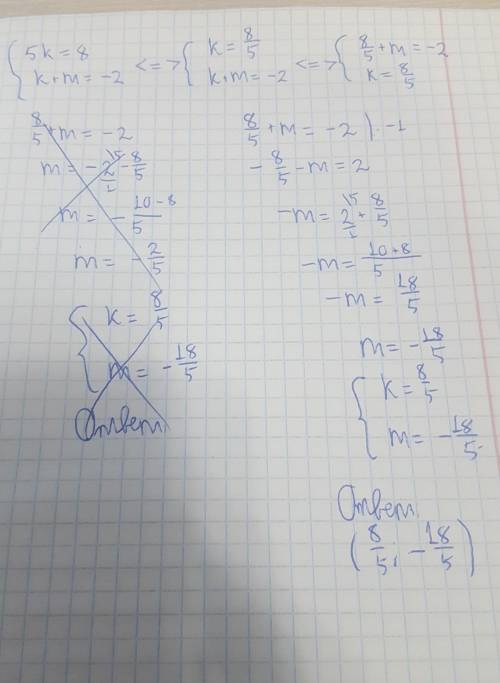 { 5k = 8 <=> { k = 8/5 <=> { 8/5 + m = -2
{ k + m = -2 { k + m = -2 { k = 8/5
8/5 + m = -2
m = - 2/1 \5 - 8/5
m = - 10 - 8 / 5
m = - 2/5
{ k = 8/5
{ m = - 18/5
Ответ
8/5 + m = -2 | · -1
- 8/5 - m = 2
-m = 2/1 \5 + 8/5
-m = 10 + 8 / 5
-m = 18/5
m = - 18/5
{ k = 8/5
{ m = - 18/5
Ответ:
(8/5; - 18/5)